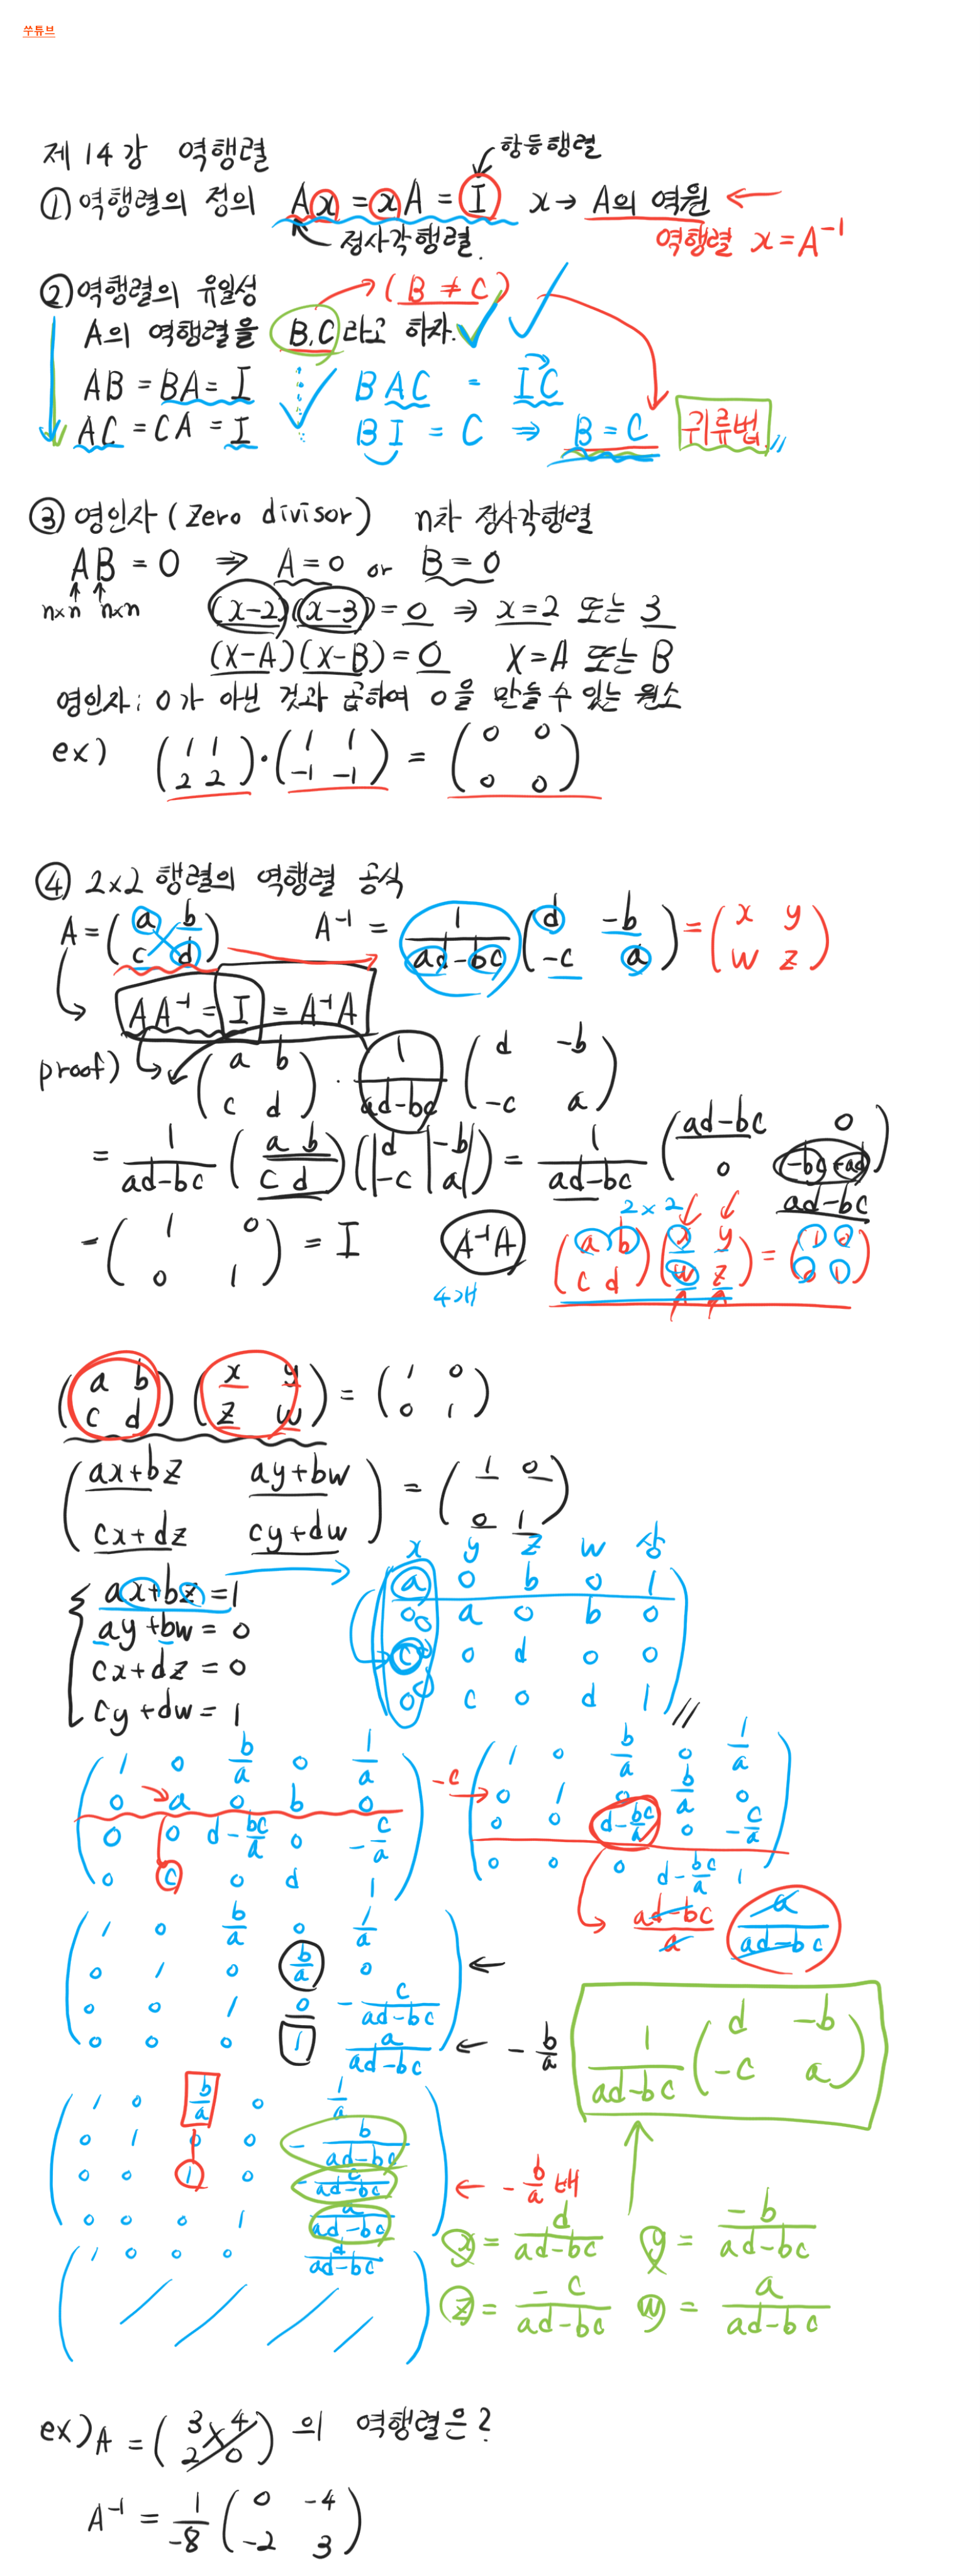 쑤튜브
제 14강 역행렬
항등행렬
① 역행렬의 정의 Ax = xA = I x → A의 역원 ←
정사각행렬. 역행렬 x = A⁻¹
② 역행렬의 유일성 (B ≠ C)
A의 역행렬을 B, C 라고 하자.
AB = BA = I BAC = IC
AC = CA = I BI = C ⇒ B = C 귀류법
③ 영인자 (Zero divisor) n차 정사각행렬
AB = 0 ⇒ A = 0 or B = 0
n×n n×n (x-2)(x-3) = 0 ⇒ x = 2 또는 3
(X-A)(X-B) = 0 X = A 또는 B
영인자 : 0가 아닌 것과 곱하여 0을 만들 수 있는 원소
ex) (1 1 / 2 2) · (1 1 / -1 -1) = (0 0 / 0 0)
④ 2×2 행렬의 역행렬 공식
A = (a b / c d) A⁻¹ = 1/(ad-bc) (d -b / -c a) = (x y / w z)
AA⁻¹ = I = A⁻¹A
proof) (a b / c d) · 1/(ad-bc) (d -b / -c a)
= 1/(ad-bc) (a b / c d) (d -b / -c a) = 1/(ad-bc) (ad-bc 0 / 0 -bc+ad)
ad-bc
2×2
= (1 0 / 0 1) = I A⁻¹A (a b / c d) (x y / w z) = (1 0 / 0 1)
4개
(a b / c d) (x y / z w) = (1 0 / 0 1)
(ax+bz ay+bw / cx+dz cy+dw) = (1 0 / 0 1)
x y z w 상
ax+bz = 1 (a 0 b 0 1
ay+bw = 0 0 a 0 b 0
cx+dz = 0 c 0 d 0 0
cy+dw = 1 0 c 0 d 1)
(1 0 b/a 0 1/a (1 0 b/a 0 1/a
0 a 0 b 0 -c → 0 1 0 b/a 0
0 0 d-bc/a 0 -c/a 0 0 d-bc/a 0 -c/a
0 c 0 d 1) 0 0 0 d-bc/a 1)
(ad-bc)/a a/(ad-bc)
(1 0 b/a 0 1/a
0 1 0 b/a 0 ←
0 0 1 0 -c/(ad-bc)
0 0 0 1 a/(ad-bc)) ← -b/a
1/(ad-bc) (d -b / -c a)
(1 0 b/a 0 1/a
0 1 0 0 -b/(ad-bc)
0 0 1 0 -c/(ad-bc) ← -b/a 배
0 0 0 1 a/(ad-bc))
(1 0 0 0 d/(ad-bc))
x = d/(ad-bc) y = -b/(ad-bc)
z = -c/(ad-bc) w = a/(ad-bc)
ex) A = (3 4 / 2 0) 의 역행렬은?
A⁻¹ = 1/-8 (0 -4 / -2 3)